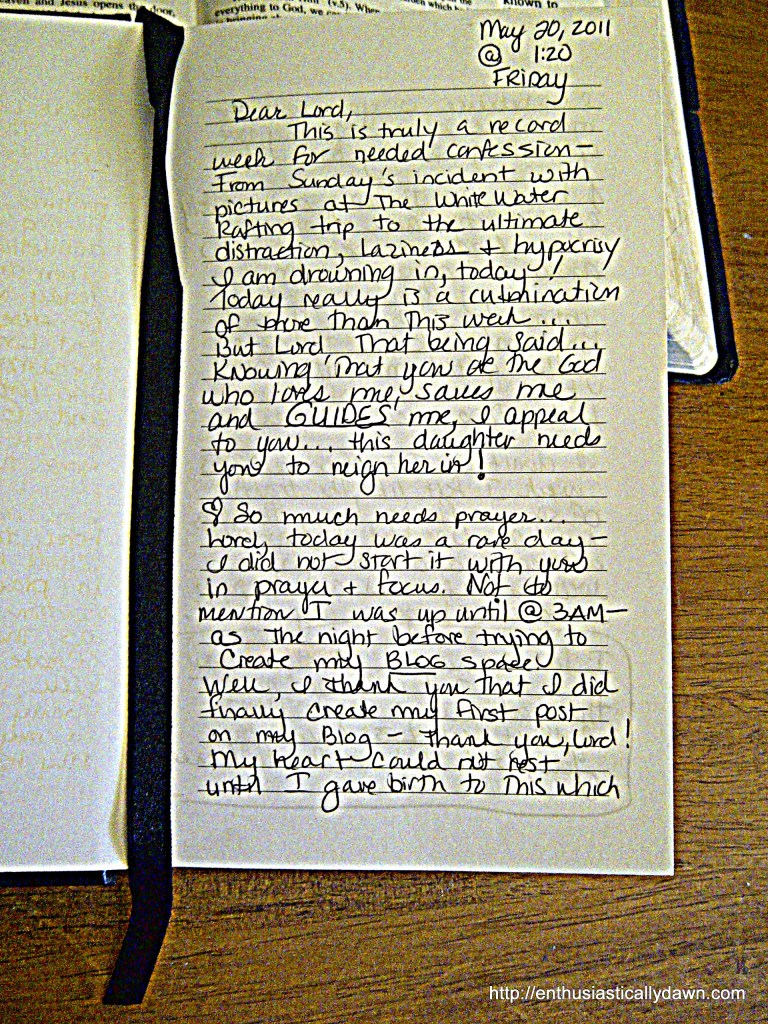 eaven and Jesus opens the door,
everything to God, we can (v.5). When
den which
known to
May 20, 2011
@ 1:20
FRiday
Dear Lord,
This is truly a record
week for needed confession–
From Sunday's incident with
pictures at The White Water
Rafting trip to the ultimate
distraction, laziness + hypocrisy
I am drowning in, today!
Today really is a culmination
of more than This week...
But Lord That being said...
Knowing That you are the God
who loves me, saves me
and GUIDES me, I appeal
to you... this daughter needs
you to reign her in!
So much needs prayer...
Lord, today was a rare day–
I did not start it with you
in prayer + focus. Not to
mention I was up until @ 3AM–
as The night before trying to
Create my BLOG space
Well, I thank you That I did
finally create my first post
on my Blog – Thank you, Lord!
My heart could not rest
until I gave birth to This which
http://enthusiasticallydawn.com/